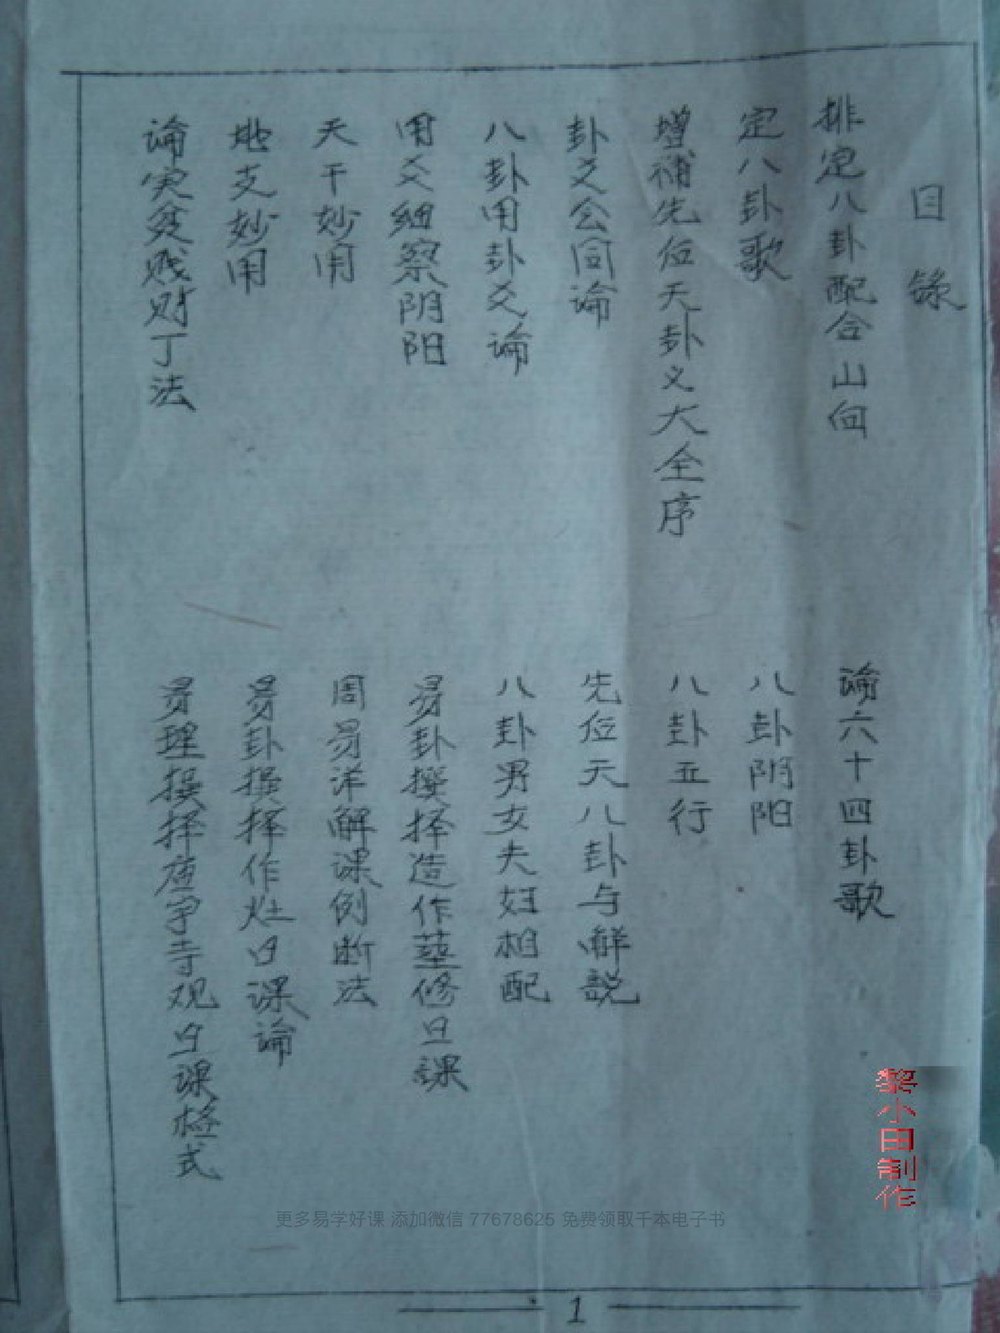 目錄
排定八卦配合山向
論六十四卦歌
定八卦歌
八卦阴阳
增補先后天卦义大全序
八卦五行
卦爻公同論
先后天八卦与解説
八卦用卦爻論
八卦男女夫妇相配
用爻细察阴阳
易卦撰择造作葬修日課
天干妙用
周易洋解课例断法
地支妙用
易卦撰择作灶日课論
論定贫贱财丁法
易理撰择庙寺观日课格式
黎小田制作
更多易学好课 添加微信 77678625 免费领取千本电子书
1